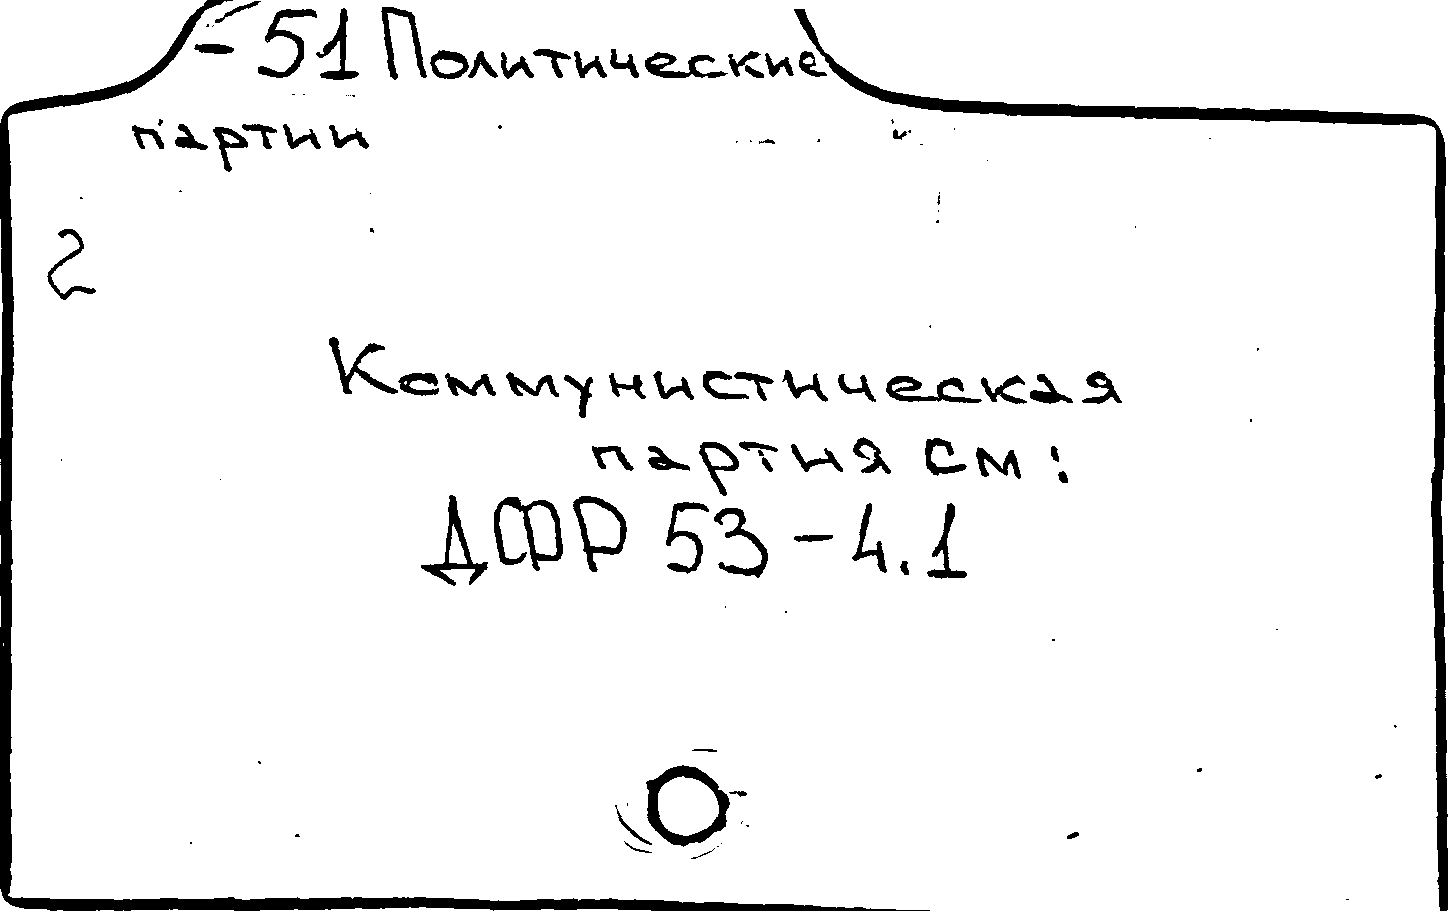 -51 Политические
партии
2
Коммунистическая
партия см:
ДФР 53-4.1